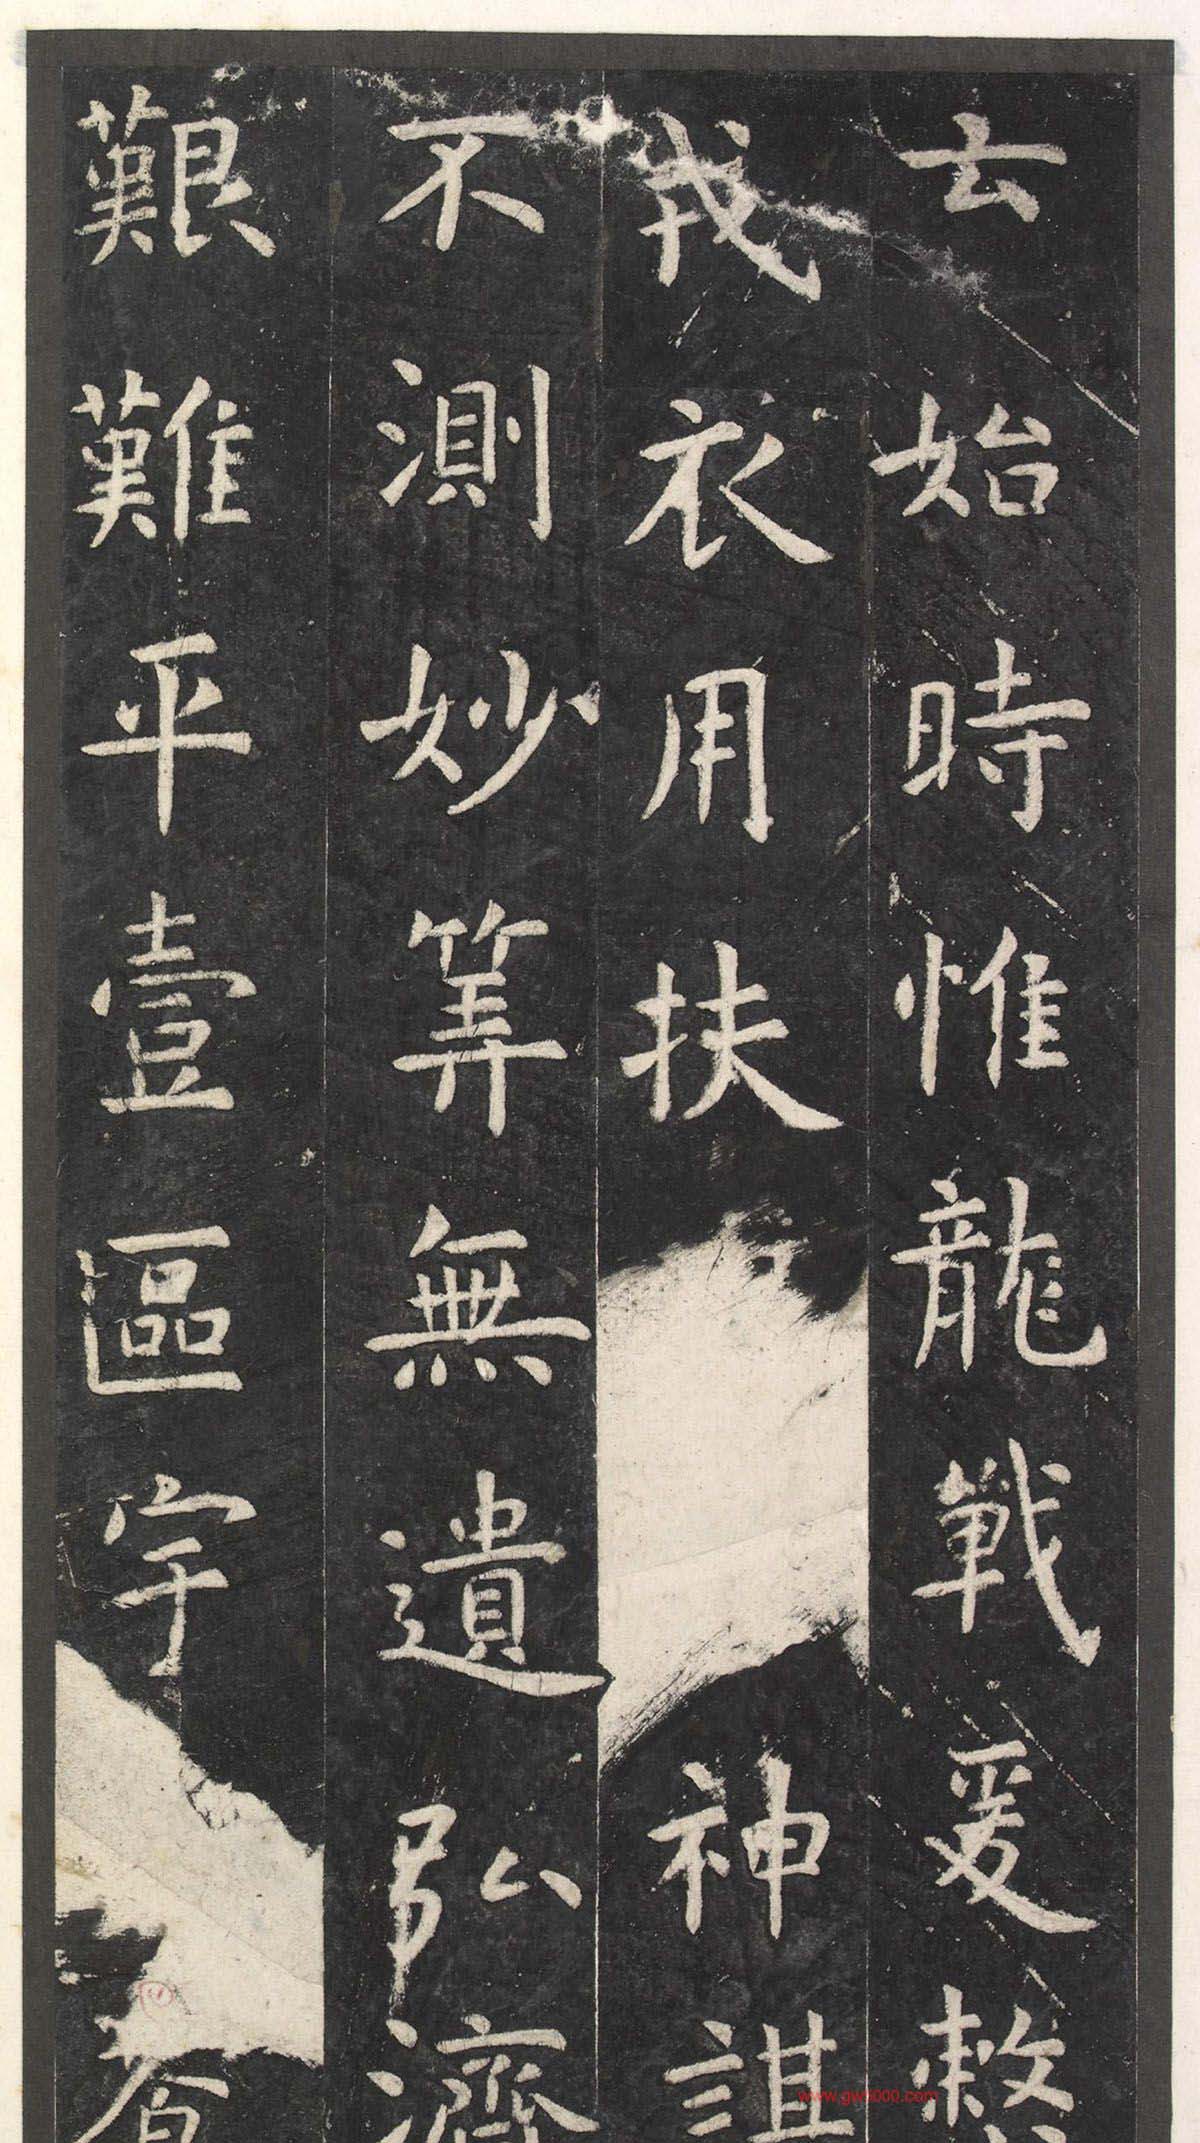 去始時惟龍戰爰整
戎衣用扶神諶
不測妙筭無遺弘濟
艱難平壹區宇
www.gw5000.com